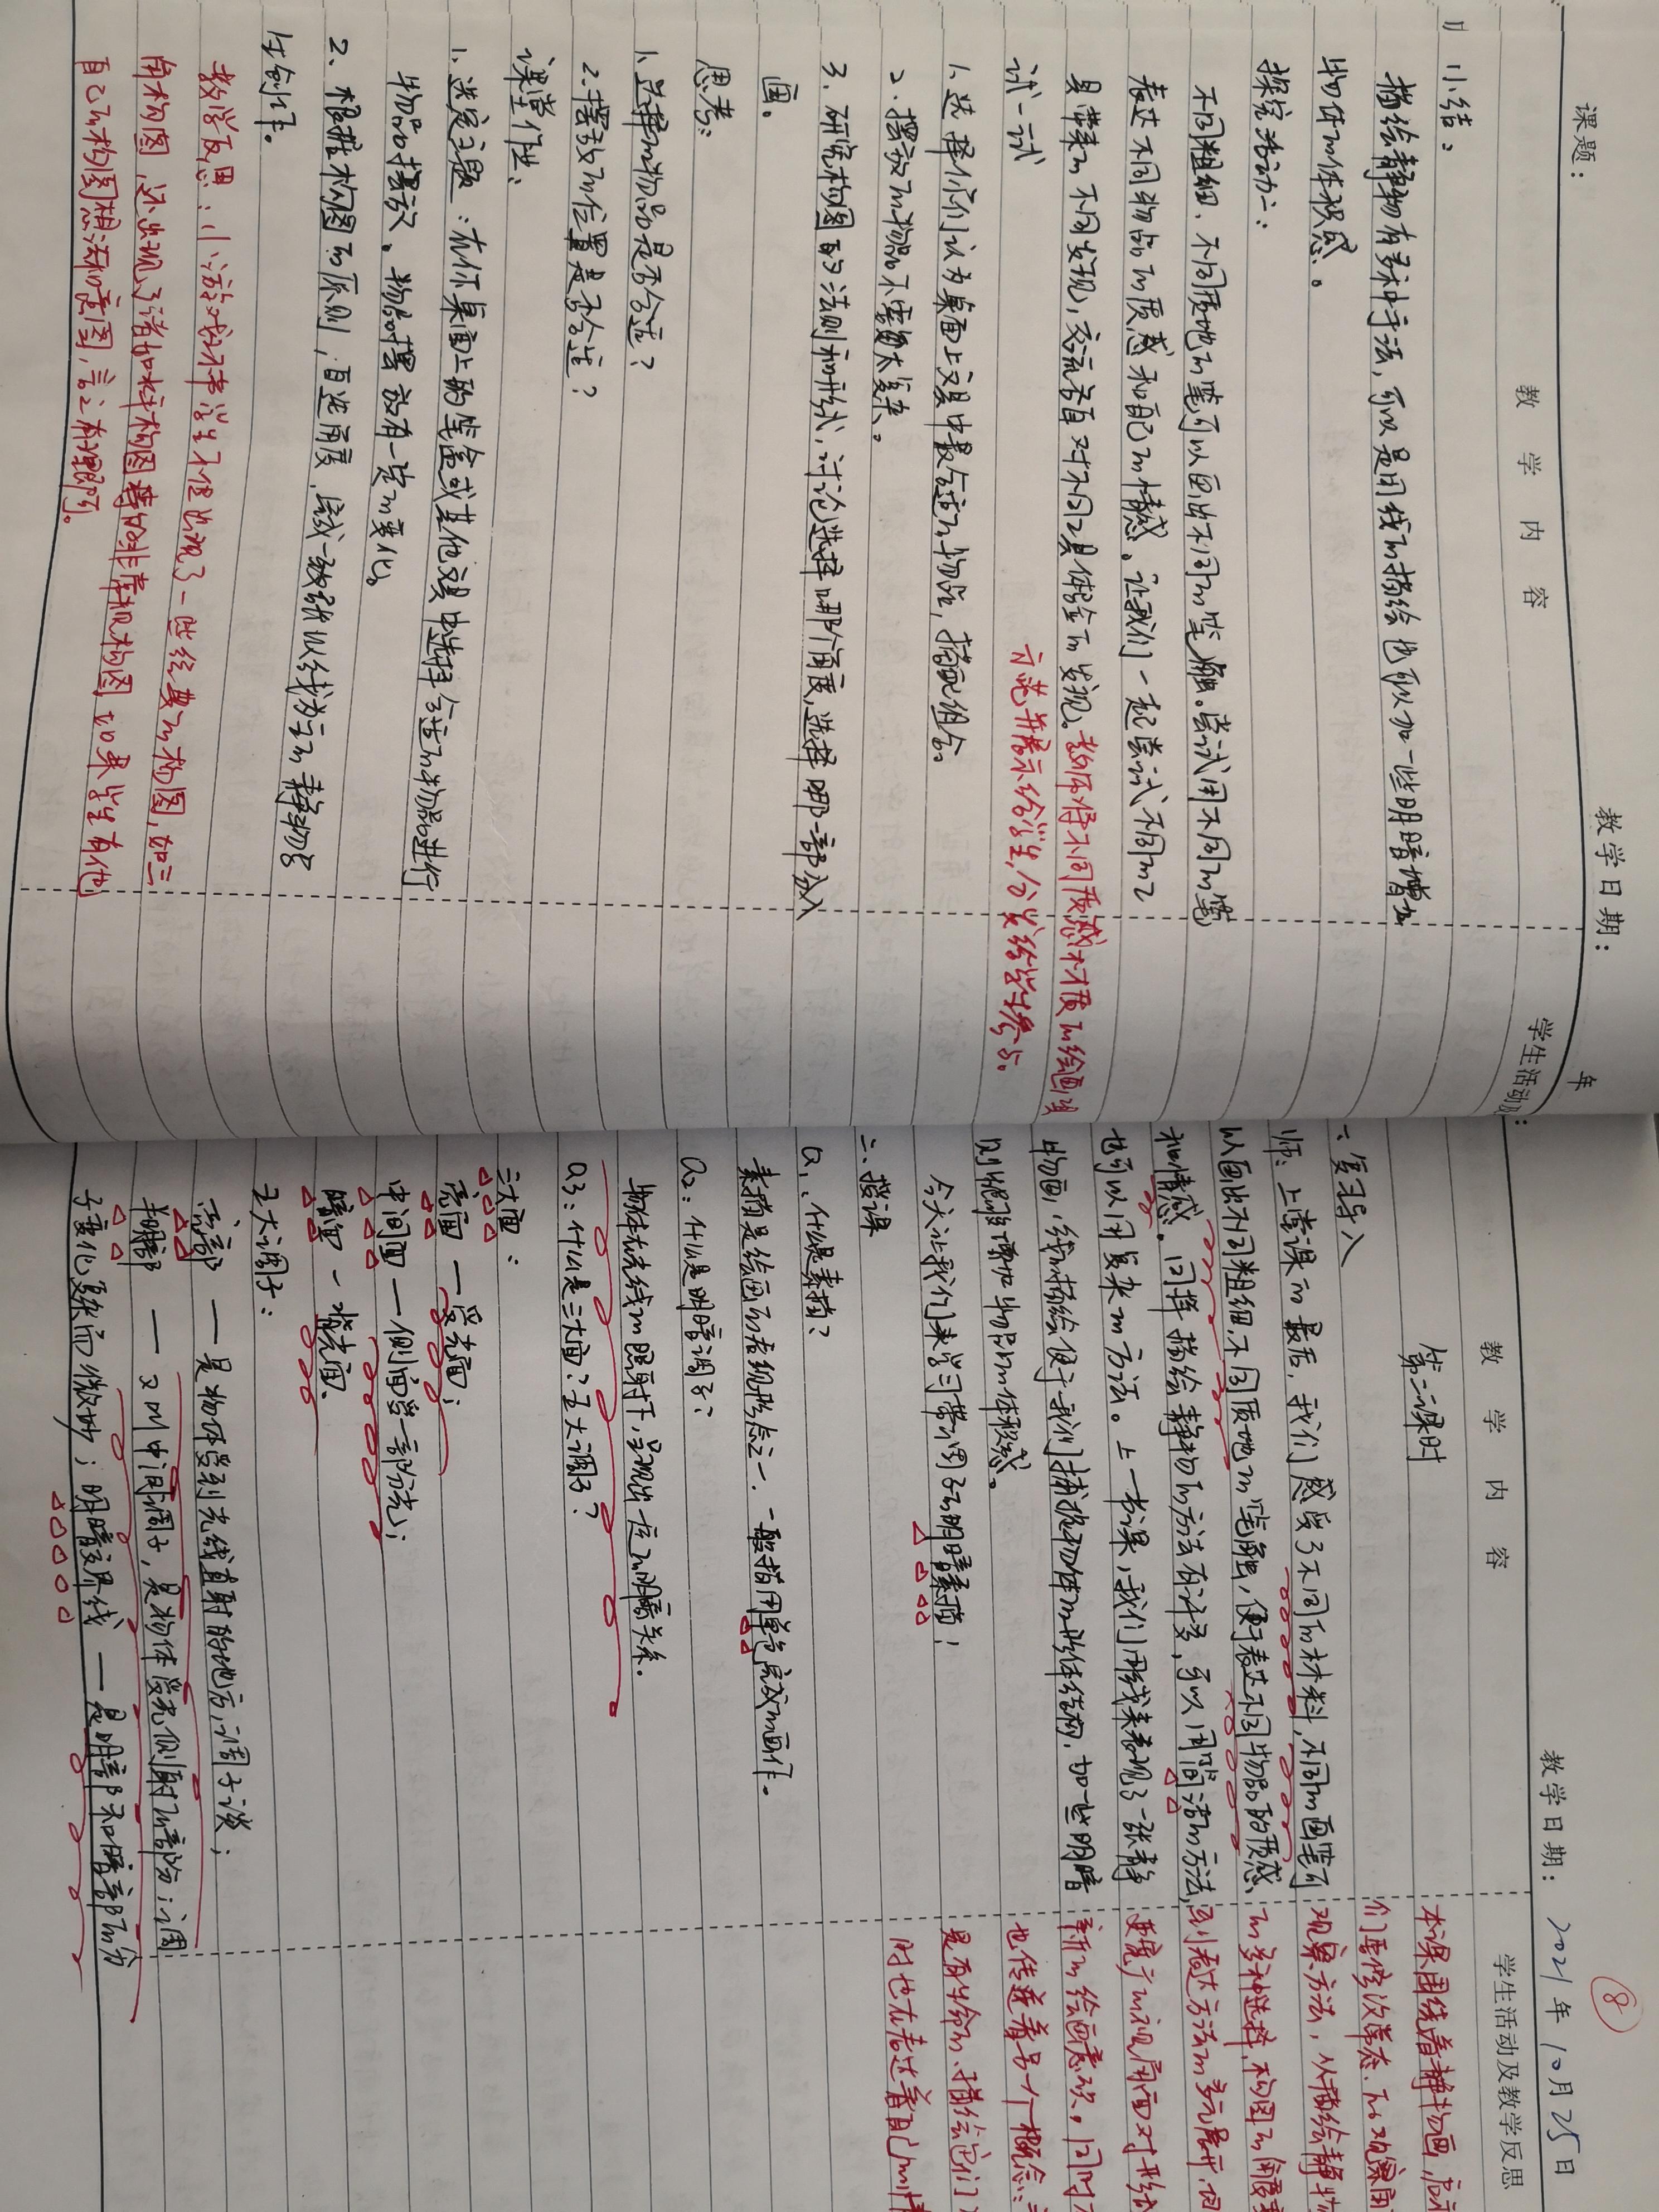 课题：
教学日期：
年
教 学 内 容
学生活动及
小结：
描绘静物有多种手法，可以是用线的描绘也可以加一些明暗增加
物体的体积感。
探究活动二：
不同粗细、不同质地的笔可以画出不同的笔触。尝试用不同的笔
表达不同物品的质感和自己的情感。让我们一起尝试不同的工
具带来的不同发现，交流各自对不同工具体验的发现。教师将不同质感材质的绘画
试一试
示范并展示给学生，分发给学生参与。
1、选择你们认为桌面上文具中最合适的物品，搭配组合。
2、摆放的物品不需要太复杂。
3、研究构图的法则和形式，讨论选择哪个角度，选择哪一部分入
画。
思考：
1、选择的物品是否合适？
2、摆放的位置是否合适？
课堂作业：
1、选定主题：在你桌面上的笔盒或其他文具中选择合适的物品进行
物品的摆放。物品的摆放有一定的变化。
2、根据构图的原则，自选角度，尝试一张以线为主的静物写
生创作。
教学反思：小游戏环节学生不仅出现了一些经典的构图，如三
角构图，还出现了诸如斜构图等的非常规构图，如果学生有他
自己的构图想法和意图，言之有理即可。
⑧
教学日期：2021年10月25日
教 学 内 容
学生活动及教学反思
第二课时
一、复习导入
师：上堂课的最后，我们感受了不同的材料，不同的画笔可
以画出不同粗细，不同质地的笔触，便于表达不同物品的质感、
和情感。同样描绘静物的方法有许多，可以用简洁的方法，
也可以用复杂的方法。上一节课，我们用线来表现了一张静
物画，线的描绘便于我们捕捉物体的形体结构，加一些明暗
则能够增加物品的体积感。
今天让我们来学习带调子的明暗素描！
二、授课
Q1：什么是素描？
素描是绘画的表现形式之一，一般指用单色完成的画作。
Q2：什么是明暗调子？
物体在光线的照射下，呈现出一定的明暗关系。
Q3：什么是三大面？五大调子？
三大面：
亮面 — 受光面；
中间面 — 侧面受一部分光；
暗面 — 背光面。
五大调子：
亮部 — 是物体受到光线直射的地方，调子淡；
半明暗部 — 又叫中间调子，是物体受光侧射的部分；调
子变化复杂而微妙；明暗交界线 — 是明部和暗部的分
本课围绕着静物画，
观察方法，从描绘静物
的多种选择，构图的角度
到表达方法的多元展开，
更宽广的视角面对
新的绘画意识。同时
也传递着另一个概念：
是有生命的，描绘它们
时也在表达着自己的情